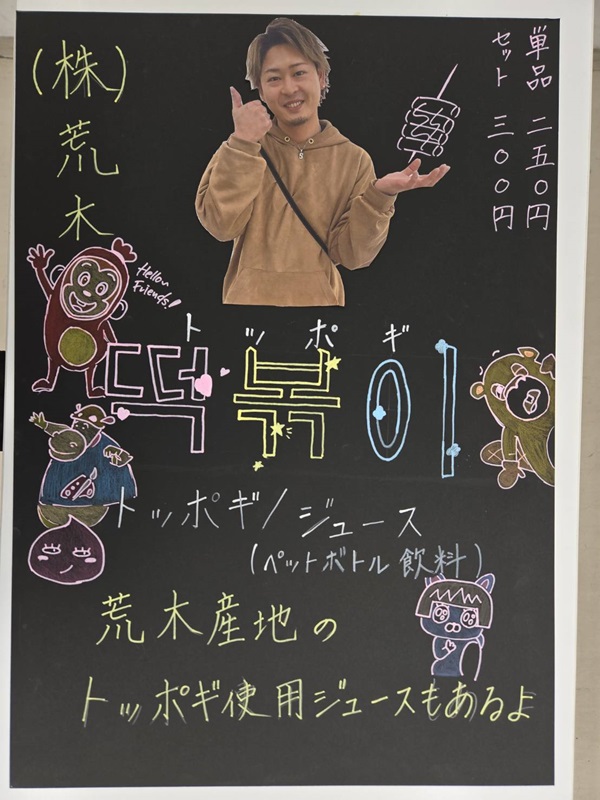 (株)荒木
単品 二五〇円
セット 三〇〇円
Hello Friends!
トッポギ
떡볶이
トッポギ/ジュース
(ペットボトル飲料)
荒木産地の
トッポギ使用ジュースもあるよ